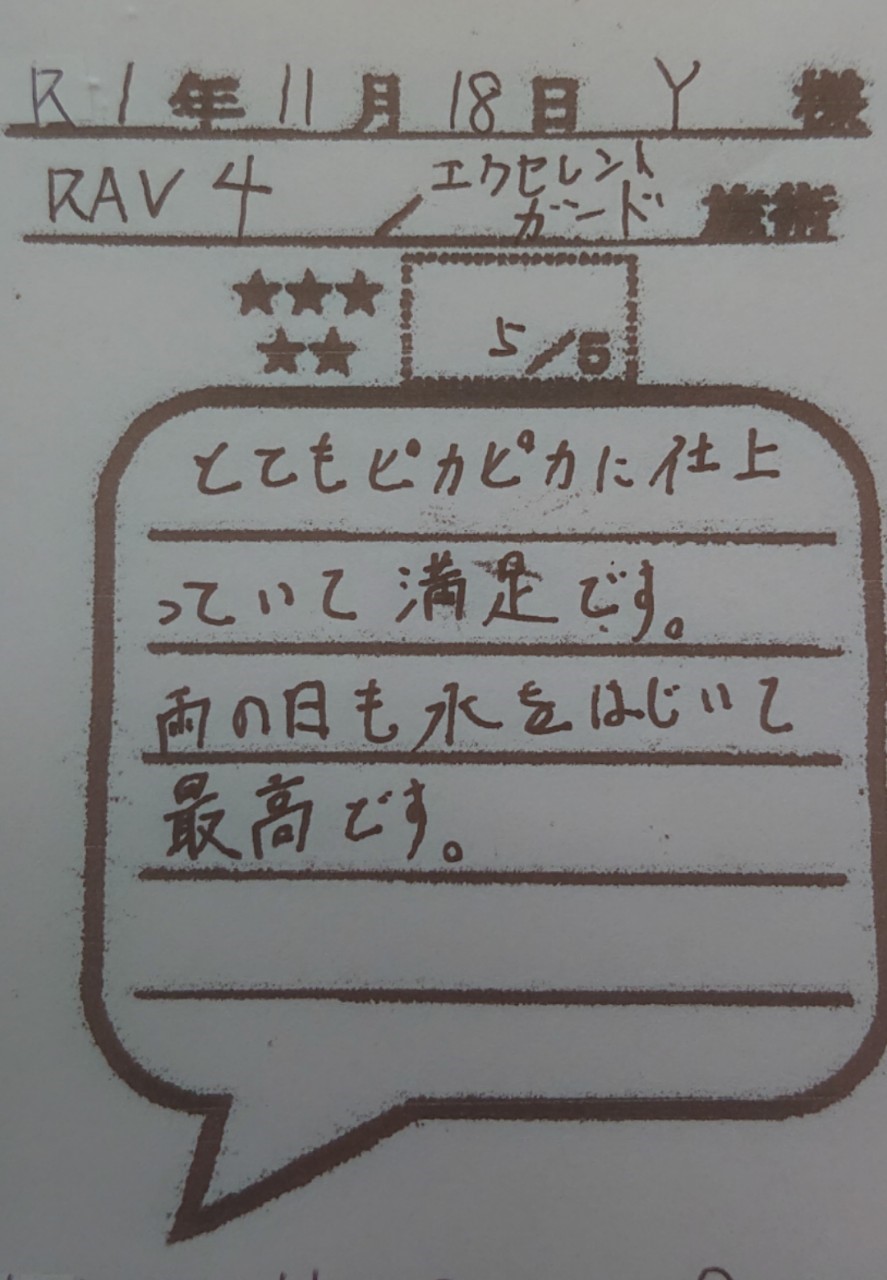 R1年11月18日 Y 様
RAV4 / エクセレント
ガード 施術
★★★
★★
5/5
とてもピカピカに仕上
っていて満足です。
雨の日も水をはじいて
最高です。